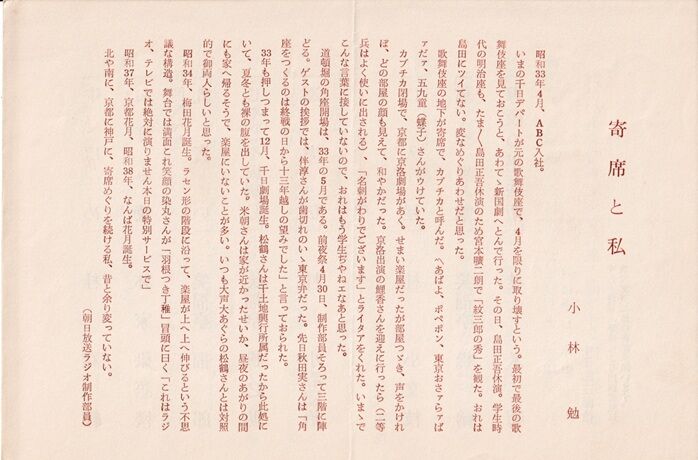 寄席と私
小林　勉
昭和33年4月、ABC入社。
いまの千日デパートが元の歌舞伎座で、4月を限りに取り壊すという。最初で最後の歌
舞伎座を見ておこうと、あわてゝ新国劇へとんで行った。その日、島田正吾休演。学生時
代の明治座も、たま〳〵島田正吾休演のため宮本曠二朗で「紋三郎の秀」を観た。おれは
島田にツイてない。変なめぐりあわせだと思った。
歌舞伎座の地下が寄席で、カブチカと呼んだ。〽あばよ、ポペポン、東京おさァらァば
ァだァ、五九童（蝶子）さんがウけていた。
カブチカ閉場で、京都に京洛劇場があく。せまい楽屋だったが部屋つゞき、声をかけれ
ば、どの部屋の顔も見えて、和やかだった。京洛出演の鯉香さんを迎えに行ったら（二等
兵はよく使いに出される）、「名刺がわりでございます」とライタアをくれた。いまゝで
こんな言葉に接していないので、おれはもう学生ぢやねエなあと思った。
道頓堀の角座開場は、33年の5月である。前夜祭4月30日、制作部員そろって三階に陣
どる。ゲストの挨拶では、伴淳さんが歯切れのいゝ東京弁だった。先日秋田実さんは「角
座をつくるのは終戦の日から十三年越しの望みでした」と言っておられた。
33年も押しつまって12月、千日劇場誕生。松鶴さんは千土地興行所属だったから此処に
いて、夏冬とも裸の腹を出していた。米朝さんは家が近かったせいか、昼夜のあがりの間
にも家へ帰るそうで、楽屋にいないことが多い。いつも大声大あぐらの松鶴さんとは対照
的で御両人らしいと思った。
昭和34年、梅田花月誕生。ラセン形の階段に沿って、楽屋が上へ上へ伸びるという不思
議な構造。舞台では満面これ笑顔の染丸さんが「羽根つき丁稚」冒頭に曰く「これはラジ
オ、テレビでは絶対に演りません本日の特別サービスで」
昭和37年、京都花月、昭和38年、なんば花月誕生。
北や南に、京都に神戸に、寄席めぐりを続ける私、昔と余り変っていない。
（朝日放送ラジオ制作部員）